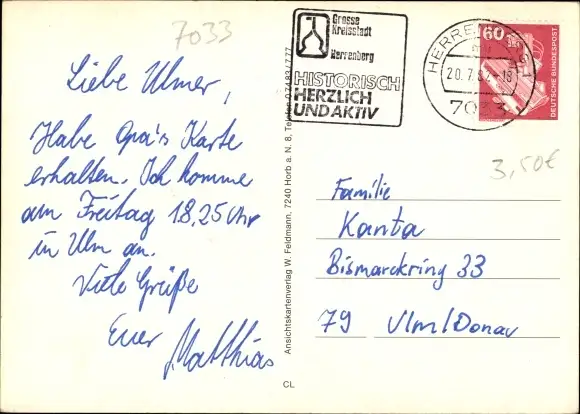 7033
Grosse
Kreisstadt
Herrenberg
HISTORISCH
HERZLICH
UND AKTIV
HERRENBERG 1
20.7.84-18
7033
60
DEUTSCHE BUNDESPOST
3,50€
Liebe Ulmer,
Habe Opa's Karte
erhalten. Ich komme
am Freitag 18.25 Uhr
in Ulm an.
Viele Grüße
Euer Matthias
Ansichtskartenverlag W. Feldmann, 7240 Horb a. N. 8, Telefon 07483/777
CL
Familie
Kanta
Bismarckring 33
79 Ulm/Donau